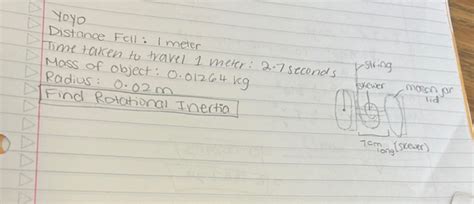 Yoyo
Distance Fell: 1 meter
Time taken to travel 1 meter: 2.7 seconds
Mass of object: 0.01264 kg
Radius: 0.02m
Find Rotational Inertia
string
skewer
mason jar
lid
7cm
long (skewer)